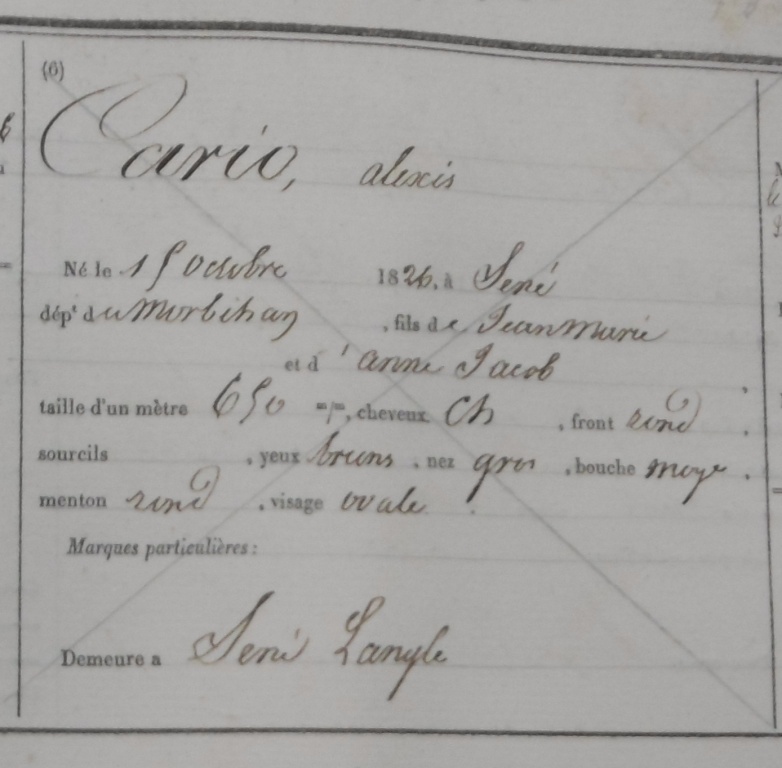 (6)
Cario, alexis
Né le 15 octobre 1826, à Séné
dépt du Morbihan, fils de Jean Marie
et d'anne Jacob
taille d'un mètre 650 m/m, cheveux ch, front rond.
sourcils , yeux bruns, nez gros, bouche moye.
menton rond, visage ovale.
Marques particulières:
Demeure a Séné Langle